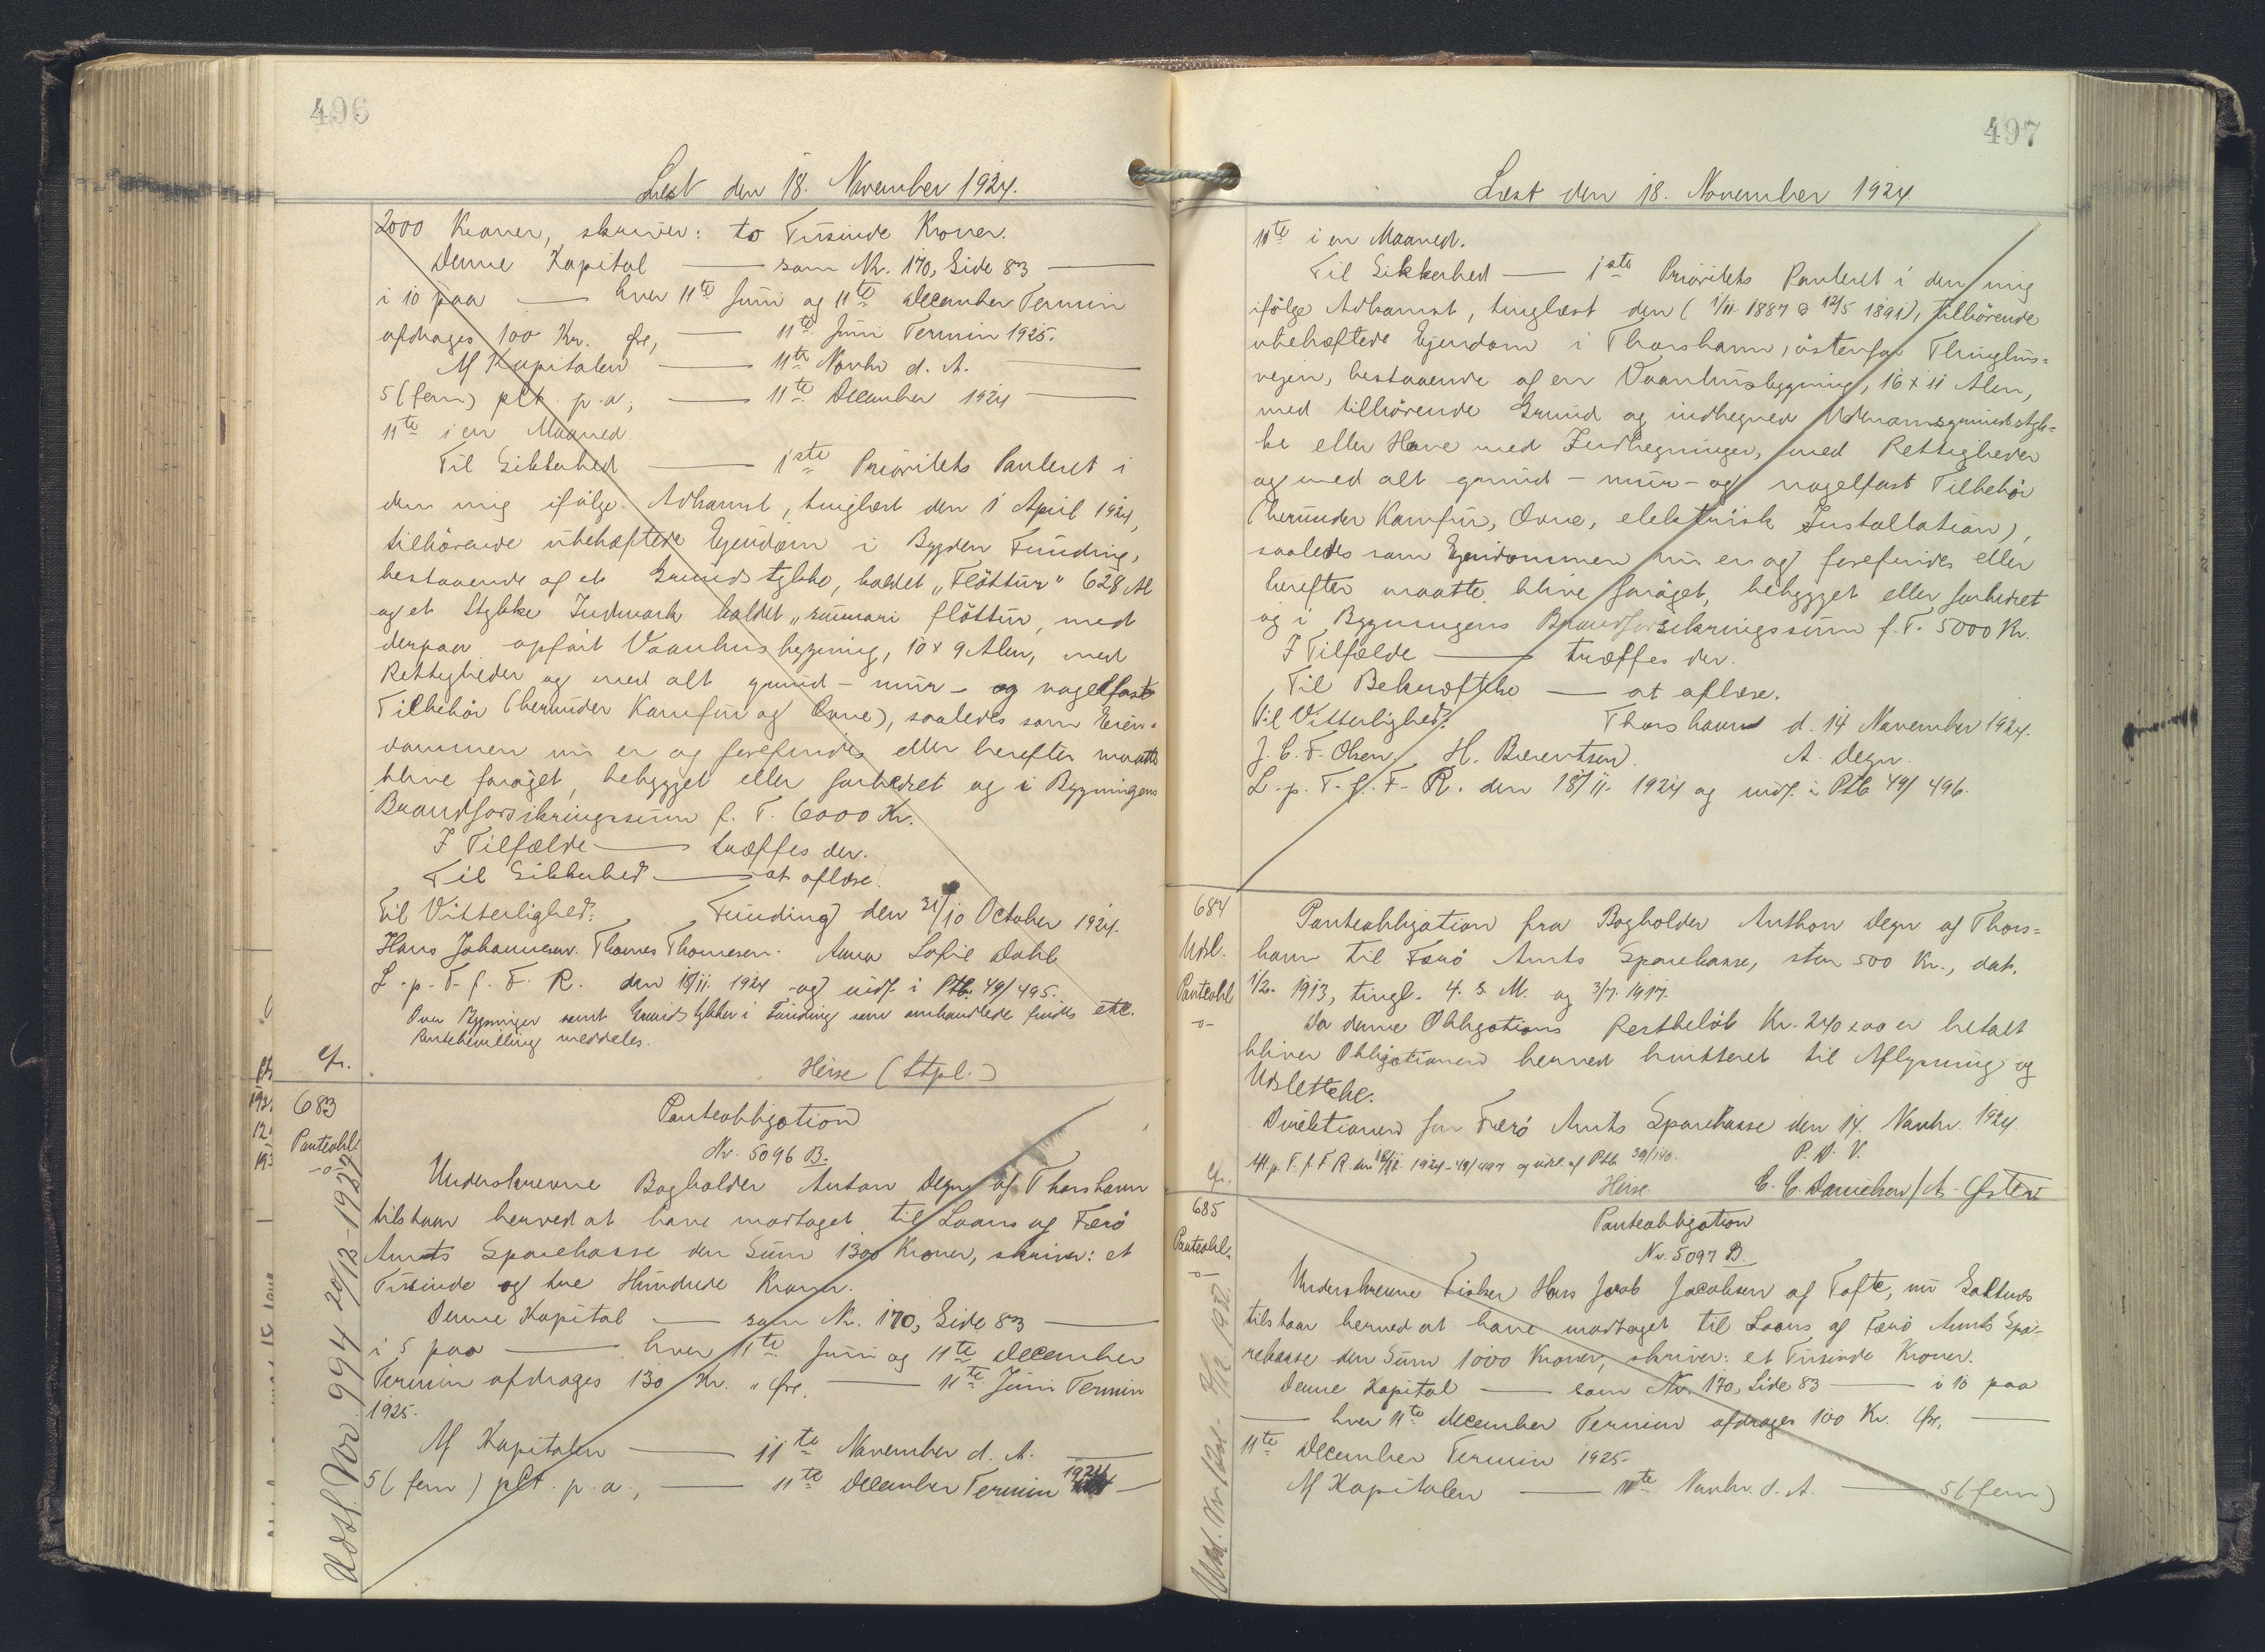 496
Læst den 18. November 1924.
2000 Kroner, skriver: to Tusinde Kroner.
Denne Kapital — som Nr. 170, Side 83 —
i 10 paa — hver 11te Juni og 11te December Termin
afdrages 100 Kr. Øre, — 11te Juni Termin 1925.
Af Kapitalen — 11te Novbr d. A. —
5 (fem) pCt. p.a., — 11te December 1924 —
11te i en Maaned.
Til Sikkerhed — 1ste Prioritets Panteret i
den mig ifølge Adkomst, tinglæst den 1 April 1924,
tilhørende ubehæftede Ejendom i Bygden Funding,
bestaaende af et Grundstykke, kaldet "Fløttur" 628 Al
og et Stykke Indmark kaldet "runnari fløttur, med
derpaa opført Vaanhusbygning, 10 x 9 Alen, med
Rettigheder og med alt grund- mur- og nagelfast
Tilbehør (herunder Komfur og Ovne), saaledes som Ejen-
dommen nu er og forefindes eller herefter maatte
blive forøget, bebygget eller forbedret og i Bygningens
Brandforsikringssum f. T. 6000 Kr.
I Tilfælde — træffes der.
Til Sikkerhed — at aflæse.
Til Vitterlighed: Funding den 31/10 October 1924.
Hans Johannesen. Thomas Thomesen. Anna Sofie Dahl
L. p. T. f. F. R. den 18/11. 1924 og indf. i Ptb. 49/495.
Over Bygninger samt Grundstykker i Funding som omhandlede findes ekl.
Pantebevilling meddeles.
cfr. Heise (Stpl.)
683
Panteobl.
-o-
Udsl. Nr. 994 20/12-1927
Panteobligation
Nr. 5096 B.
Underskrevne Bogholder Anton Degn af Thorshavn
tilstaar herved at have modtaget til Laans af Færø
Amts Sparekasse den Sum 1300 Kroner, skriver: et
Tusinde og tre Hundrede Kroner.
Denne Kapital — som Nr. 170, Side 83 —
i 5 paa — hver 11te Juni og 11te December
Termin afdrages 130 Kr. " Øre. — 11te Juni Termin
1925.
Af Kapitalen — 11te November d. A. —
5 (fem) pCt. p. a., — 11te December Termin 1924 —
497
Læst den 18. November 1924
11te i en Maaned.
Til Sikkerhed — 1ste Prioritets Panteret i den mig
ifølge Adkomst, tinglæst den (1/11 1887 & 12/5 1891), tilhørende
ubehæftede Ejendom i Thorshavn, østenfor Thinghus-
vejen, bestaaende af en Vaanhusbygning, 16 x 11 Alen,
med tilhørende Grund og indhegned Udmarksgrundstyk-
ke eller Have med Indhegninger, med Rettigheder
og med alt grund- mur- og nagelfast Tilbehør
(herunder Komfur, Ovne, elektrisk Installation),
saaledes som Ejendommen nu er og forefindes eller
herefter maatte blive forøget, bebygget eller forbedret
og i Bygningens Brandforsikringssum f. T. 5000 Kr.
I Tilfælde — træffes der.
Til Bekræftelse — at aflæse.
Til Vitterlighed: Thorshavn d. 14 November 1924.
J. C. F. Olsen. H. Berentsen. A. Degn.
L. p. T. f. F. R. den 18/11. 1924 og indf. i Ptb 49/496.
684
Udsl.
Panteobl
-o-
Panteobligation fra Bogholder Anthon Degn af Thors-
havn til Færø Amts Sparekasse, stor 500 Kr., dat.
1/2. 1913, tingl. 4. s. M. og 3/7. 1917.
Da denne Obligations Restbeløb Kr. 240 x 00 er betalt
bliver Obligationen herved kvitteret til Aflysning og
Udslettelse.
Direktionen for Færø Amts Sparekasse den 14. Novbr. 1924.
P. D. V.
Afl. p. T. f. F R. den 18/11. 1924 - 49/497 og udsl. af Ptb 39/140.
cfr. Heise C. C. Danielsen / A. Østerø
685
Panteobl.
-o-
Panteobligation
Nr. 5097 B.
Underskrevne Fisker Hans Jacob Jacobsen af Tofte, nu Saltnes
tilstaar herved at have modtaget til Laans af Færø Amts Spa-
rekasse den Sum 1000 Kroner, skriver: et Tusinde Kroner.
Denne Kapital — som Nr. 170, Side 83 — i 10 paa
— hver 11te December Termin afdrages 100 Kr. Øre, —
11te December Termin 1925.
Af Kapitalen — 11te Novbr. d. A. — 5 (fem)